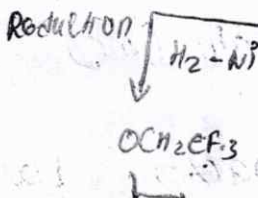 Reduction
H2-Ni
OCH2CF3